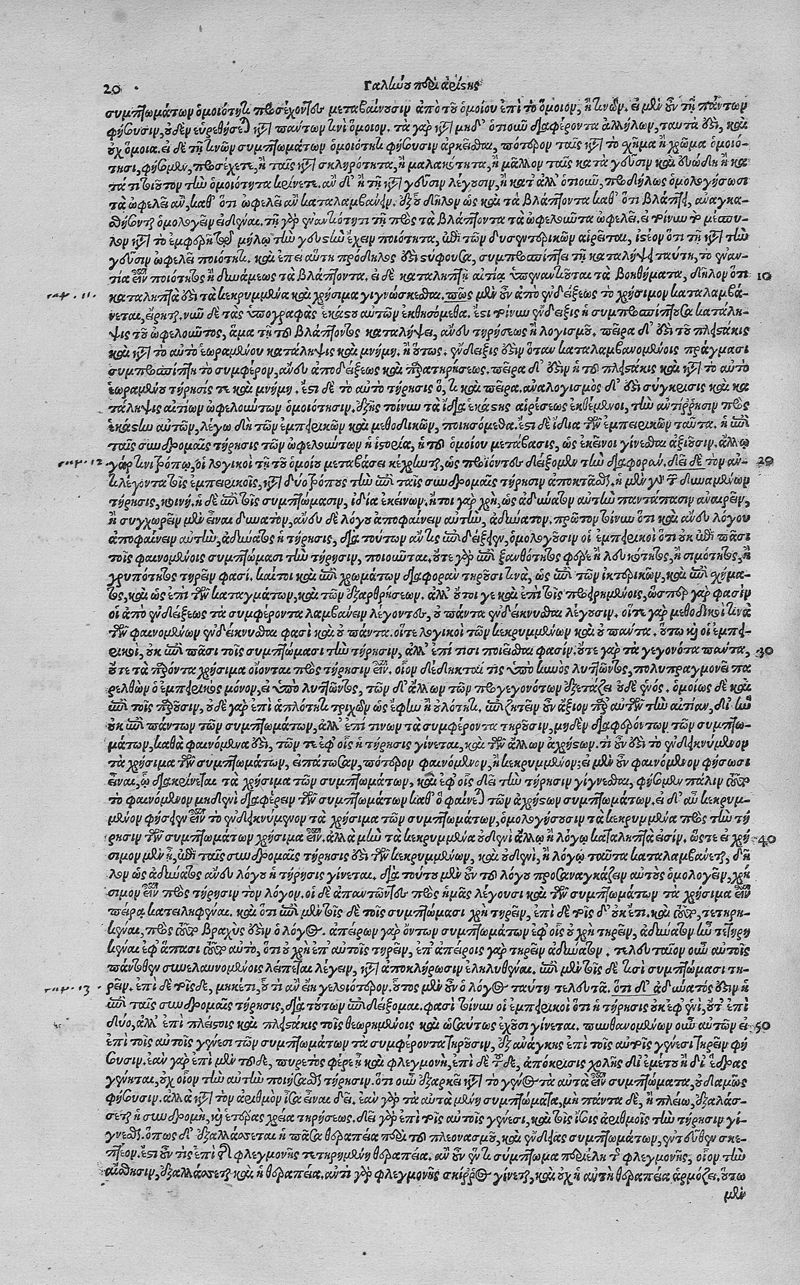 20 Γαληνοῦ περὶ ἀρίστης
συμπτωμάτων ὁμοιότητι προσέχοντες μεταβαίνουσιν ἀπὸ τοῦ ὁμοίου ἐπὶ τὸ ὅμοιον, ἢ τινῶν. εἰ μὲν οὖν τῇ πάντων
φήσουσιν, οὐδὲν εὑρεθήσεται κατὰ πάντων τινὶ ὅμοιον. τὰ γὰρ κατὰ μηδ' ὁτιοῦν διαφέροντα ἀλλήλων, ταὐτά ἐστι, καὶ
οὐχ ὅμοια. εἰ δὲ τῇ τινῶν συμπτωμάτων ὁμοιότητι φήσουσιν ἀρκεῖσθαι, πότερον ταῖς κατὰ τὸ σχῆμα ἢ χρῶμα ὁμοιό-
τησι, φήσομεν, προσέχετε, ἢ ταῖς κατὰ σκληρότητα, ἢ μαλακότητα, ἢ μᾶλλον ταῖς κατὰ γεῦσιν καὶ εὐώδη ἢ κα
τὰ τί ποιὸν τὴν ὁμοιότητα κρίνετε. ἂν δ' ἢ τῇ κατὰ γεῦσιν λέγουσιν, ἢ κατ' ἄλλ' ὁτιοῦν, προδήλως ὁμολογήσουσι
τὰ ὠφελεῖν ἂν, καθ' ὅτι ὠφελεῖ ἂν καταλαμβάνειν. ἐξ οὗ δῆλον ὡς καὶ τὰ βλάπτοντα καθ' ὅτι βλάπτει, ἀναγκα-
σθήσονται ὁμολογεῖν εἰδέναι. τῇ γὰρ ἐναντιότητι τῇ πρὸς τὰ βλάπτοντα τὰ ὠφελοῦντα ὠφελεῖ.
γεῦσιν ὠφελεῖ ποιότητι. καὶ ἐπεὶ αὕτη πρόδηλός ἐστι συμπροσπίπτει τῇ καταλήψει ταύτῃ, τὸ ἐναν-
τία εἶναι ποιότητος ἢ δυνάμεως τὰ βλάπτοντα. εἰ δὲ καταληπτὴ αὐτία ὑπεναντιοῦται τὰ βοηθήματα, δῆλον ὅτι 10
καταληπτά ἐστι τὰ κεκρυμμένα καὶ χρήσιμα γιγνώσκεσθαι. πῶς μὲν οὖν ἀπὸ ἐνδείξεως τὸ χρήσιμον καταλαμβά-
νεται, εἴρηται. νῦν δὲ τὰς ὑπογραφὰς ἑκάστου αὐτῶν ἐκθησόμεθα. ἔστι τοίνυν ἔνδειξις ἡ συμπροσπίπτουσα κατάλη-
ψις τοῦ ὠφελοῦντος, ἅμα τῇ τοῦ βλάπτοντος καταλήψει, ἄνευ τηρήσεως ἢ λογισμοῦ. πεῖρα δ' ἐστὶ τοῦ πλειστάκις
καὶ κατὰ τὸ αὐτὸ ἑωραμένου κατάληψις καὶ μνήμη. ἢ οὕτως. ἔνδειξίς ἐστιν ὅταν καταλαμβανομένοις πράγμασι
συμπροσπίπτῃ τὸ συμφέρον, ἄνευ ἀποδείξεως καὶ παρατηρήσεως. πεῖρα δ' ἐστὶν ἡ τοῦ πλειστάκις καὶ κατὰ τὸ αὐτὸ
ἑωραμένου τήρησίς τε καὶ μνήμη. ἔστι δὲ τὸ αὐτὸ τήρησις ὅ, τι καὶ πεῖρα. ἀναλογισμὸς δ' ἐστὶ σύγκρισις καὶ κα
τάληψις αἰτίων ὠφελούντων ὁμοιότησιν. ἑξῆς τοίνυν τὰ ἴδια ἑκάστης αἱρέσεως ἐκθέμενοι, τὴν ἀντίρρησιν πρὸς
ἑκάστην αὐτῶν, λέγω δὴ τῶν ἐμπειρικῶν καὶ μεθοδικῶν, ποιησόμεθα. ἔστι δὲ ἴδια τῶν ἐμπειρικῶν ταῦτα. ἡ ἐπὶ
ταῖς συνδρομαῖς τήρησις τῶν ὠφελούντων ἡ ἱστορία, ἡ τοῦ ὁμοίου μετάβασις, ὡς ἐκεῖνοι γίνεσθαι ἀξιοῦσιν. ἄλλῳ
γὰρ τινὶ τρόπῳ, οἱ λογικοὶ τῇ τοῦ ὁμοίου μεταβάσει κέχρηνται, ὡς προϊόντες δείξομεν τὴν διαφοράν. δεῖ δὲ τὸν ἀν- 20
τιλέγοντα τοῖς ἐμπειρικοῖς, κατὰ δύο τρόπους τὴν ἐπὶ ταῖς συνδρομαῖς τήρησιν ἀποκτᾶσθαι. ἡ μὲν γὰρ τῶν δυναμένων
τήρησις, κοινή. ἡ δὲ ἐπὶ τοῖς συμπτώμασιν, ἰδία ἐκείνων. ἤτοι γὰρ χρὴ, ὡς ἀδύνατον αὐτὴν παντάπασιν ἀναιρεῖν,
ἢ συγχωρεῖν μὲν εἶναι δυνατὸν, ἄνευ δὲ λόγου ἀποφαίνειν αὐτὴν, ἀδύνατον. πρῶτον τοίνυν ὅτι καὶ ἄνευ λόγου
ἀποφαίνειν αὐτὴν, ἀδύνατος ἡ τήρησις, διὰ τούτων ἂν ἐπιδείξαιεν, ὁμολογοῦσιν οἱ ἐμπειρικοὶ ὅτι οὐκ ἐπὶ πᾶσι
τοῖς φαινομένοις συμπτώμασι τὴν τήρησιν, ποιοῦνται. οὔτε γὰρ ἐπὶ ξανθότητος φέρε ἢ λευκότητος, ἢ σιμότητος, ἢ
γρυπότητος τηρεῖν φασί. καίτοι καὶ ἐπὶ χρωμάτων διαφορὰν τηροῦσί τινα, ὡς ἐπὶ τῶν ἰκτερικῶν, καὶ ἐπὶ σχήμα-
τος, καὶ ὡς ἐπὶ τῶν καταγμάτων, καὶ τῶν ἐξαρθρήσεων. ἀλλ' οὔτοι γε καὶ ἐπὶ τοῖς προειρημένοις, ὥσπερ γὰρ φασὶν
οἱ ἀπὸ ἐνδείξεως τὰ συμφέροντα λαμβάνειν λέγοντες, οὐ πάντα ἐνδείκνυσθαι λέγουσιν. οἵτε γὰρ μεθοδικοί τινα
τῶν φαινομένων ἐνδείκνυσθαι φασὶ καὶ οὐ πάντα. οἵτε λογικοὶ τῶν κεκρυμμένων καὶ οὐ πάντα. οὕτω καὶ οἱ ἐμπει-
ρικοὶ, οὐκ ἐπὶ πᾶσι τοῖς συμπτώμασι τὴν τήρησιν, ἀλλ' ἐπί τισι ποιεῖσθαι φασίν. οὔτε γὰρ τὰ γεγονότα πάντα, 30
οὔτε τὰ παρόντα χρήσιμα οἴονται πρὸς τήρησιν εἶναι. οἷον δέδηκταί τις ὑπὸ κυνὸς λυττῶντος, πολυπραγμονεῖ πα
ρελθὼν ὁ ἐμπειρικὸς μόνον, εἰ ὑπὸ λυττῶντος, τῶν δ' ἄλλων τῶν προγεγονότων ἐξετάζει οὐδὲ ἑνός. ὁμοίως δὲ καὶ
ἐπὶ τοῖς παροῦσιν, οὐδὲ γὰρ ἐπὶ ἁπλότητι τριχῶν ὡς ἔφην ἢ οὐλότητι. ἐπιζητεῖν οὖν ἄξιον παρ' αὐτῶν τὴν αἰτίαν, δι' ἣν
οὐκ ἐπὶ πάντων τῶν συμπτωμάτων, ἀλλ' ἐπὶ τίνων τὰ συμφέροντα τηροῦσιν, μηδὲν διαφερόντων τῶν συμπτω-
μάτων, καθὰ φαινόμενά ἐστι, τῶν τε ἐφ' οἷς ἡ τήρησις γίνεται, καὶ τῶν ἄλλων ἀχρήστων. τί οὖν ἐστι τὸ ἐνδεικνύμενον
τὰ χρήσιμα τῶν συμπτωμάτων, εἰπάτωσαν, πότερον φαινόμενον, ἢ κεκρυμμένον; εἰ μὲν οὖν φαινόμενον φήσουσι
εἶναι, ᾧ διακρίνεται τὰ χρήσιμα τῶν συμπτωμάτων, καὶ ἐφ' οἷς δεῖ τὴν τήρησιν γίγνεσθαι, φήσομεν πάλιν παρὰ
τὸ φαινόμενον μηδενὶ διαφέρειν τῶν συμπτωμάτων καθ' ὃ φαίνεται τῶν ἀχρήστων συμπτωμάτων. εἰ δ' αὖ κεκρυμ-
μένον φήσειεν εἶναι τὸ ἐνδεικνύμενον τὰ χρήσιμα τῶν συμπτωμάτων, ὁμολογήσουσι τὰ κεκρυμμένα πρὸς τὴν τή
ρησιν τῶν συμπτωμάτων χρήσιμα εἶναι. ἀλλὰ μὴν τὰ κεκρυμμένα οὐδενὶ ἄλλῳ ἢ λόγῳ καταληπτά εἰσιν. ὥστε εἰ χρή 40
σιμον μὲν ᾖ, ἐπὶ ταῖς συνδρομαῖς τήρησις ἐστὶ τῶν κεκρυμμένων, καὶ οὐδενὶ, ἢ λόγῳ ταῦτα καταλαμβάνεται, δῆ
λον ὡς ἀδύνατος ἄνευ λόγου ἡ τήρησις γίνεται. διὰ τοῦτο μὲν οὖν τοῦ λόγου προσαναγκάζειν αὐτοὺς ὁμολογεῖν, χρή
σιμον εἶναι πρὸς τήρησιν τὸν λόγον. οἱ δὲ ἀπαντῶντες πρὸς ἡμᾶς λέγουσι καὶ τῶν συμπτωμάτων τὰ χρήσιμα εἶναι
πεῖρᾳ κατειληφέναι. καὶ ὅτι ἐπὶ μὲν τοῖσδε τοῖς συμπτώμασι χρὴ τηρεῖν, ἐπὶ δὲ τοῖσδ' οὐκέτι. καὶ τετηρη-
κέναι, πρὸς βραχύς ἐστιν ὁ λόγος. ἀπείρων γὰρ ὄντων συμπτωμάτων ἐφ' οἷς οὐ χρὴ τηρεῖν, ἀδύνατον ἦν τετηρη
κέναι ἐφ' ἅπασι αὐτὸ, ὅτι οὐ χρὴ ἐπ' αὐτοῖς τηρεῖν, ἐπ' ἀπείροις γὰρ τηρεῖν ἀδύνατον. τελευταῖον οὖν αὐτοῖς
πάντοθεν συνελαυνομένοις λείπεται λέγειν, κατὰ ἀποκλήρωσιν ἐληλυθέναι. ἐπὶ μὲν τοῖσδέ τισι συμπτώμασι τη-
ρεῖν. ἐπὶ δὲ τοῖσδε, μηκέτι, οὗ τί ἂν εἴη γελοιότερον. οὗτος μὲν οὖν ὁ λόγος ταύτῃ τελευτᾷ. ὅτι δ' ἀδύνατός ἐστιν ἡ
ἐπὶ ταῖς συνδρομαῖς τήρησις, διὰ τούτων ἐπιδείξομαι. φασὶ τοίνυν οἱ ἐμπειρικοὶ ὅτι ἡ τήρησις οὐκ ἐφ' ἑνὶ, οὔτ' ἐπὶ
δύο, ἀλλ' ἐπὶ πλείστοις καὶ πλειστάκις τοῖς θεωρημένοις καὶ ὡσαύτως ἔχουσι γίνεται. πυνθανομένων οὖν αὐτῶν εἰ 50
ἐπὶ τοῖς αὐτοῖς γένεσι τῶν συμπτωμάτων τὰ συμφέροντα τηροῦσιν, ἐξ ἀνάγκης ἐπὶ τοῖς αὐτοῖς γένεσι τηρεῖν φή
σουσιν. ἐὰν γὰρ ἐπὶ μὲν τοῦδε, πυρετὸς φέρε ἢ καὶ φλεγμονὴ, ἐπὶ δὲ τοῦδε, ἀπόκρισις χολῆς δι' ἐμέτου ἢ δι' ἕδρας
γένηται, οὐχ οἷόν τε τὴν αὐτὴν ποιῆσαι τήρησιν. ὅτι οὖν ἐξαρκεῖ κατὰ τὸ γένος τὰ αὐτὰ εἶναι συμπτώματα, οὐδαμῶς
φήσουσιν. ἀλλὰ κατὰ τὸν ἀριθμὸν ἴσα εἶναι δεῖ. ἐὰν γὰρ τὰ αὐτὰ μὲν συμπτώματα, μὴ πάντα δὲ, ἢ πλείω, ἐξαλάσ-
σεται ἡ συνδρομὴ, καὶ ἑτέρας χρεία τηρήσεως. δεῖ γὰρ ἐπὶ τοῖς αὐτοῖς γένεσι, καὶ τοῖς ἴσοις ἀριθμοῖς τὴν τήρησιν γί-
γνεσθαι. ὅπως δ' ἐξαλλάσσεται ἡ πᾶσα θεραπεία περὶ τοῦ πλεονασμοῦ, καὶ ἐνδείας συμπτωμάτων, ἐντεῦθεν σκε-
πτέον. ἔστι οὖν τις ἐπὶ φλεγμονῆς τετηρημένη θεραπεία. ἂν οὖν ἕν τι σύμπτωμα περιέλῃ τῆς φλεγμονῆς, οἷον τὴν
αἴσθησιν, ἐξαλλάσσεται καὶ ἡ θεραπεία. ἀντὶ γὰρ φλεγμονῆς σκίρρος γίνεται, καὶ οὐχ ἡ αὐτὴ θεραπεία ἁρμόζει. οὕτω
μὲν